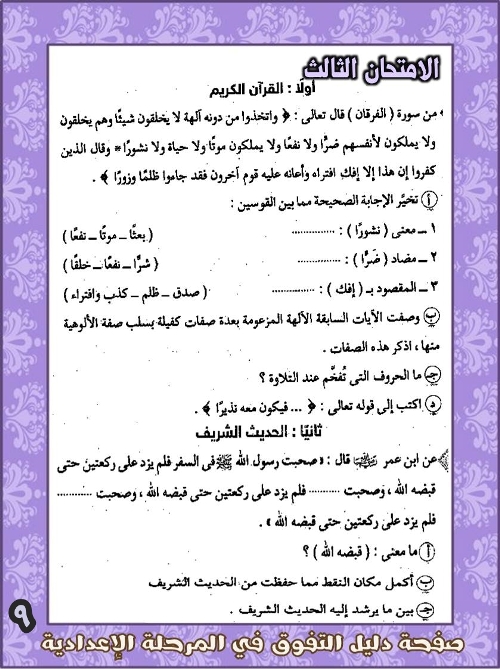 الامتحان الثالث
أولًا : القرآن الكريم
من سورة ( الفرقان ) قال تعالى : ﴿ واتخذوا من دونه آلهة لا يخلقون شيئًا وهم يخلقون
ولا يملكون لأنفسهم ضرًّا ولا نفعًا ولا يملكون موتًا ولا حياة ولا نشورًا * وقال الذين
كفروا إن هذا إلا إفك افتراه وأعانه عليه قوم آخرون فقد جاءوا ظلمًا وزورًا ﴾ .
أ تخيَّر الإجابة الصحيحة مما بين القوسين :
١ ــ معنى ( نشورًا ) : ............... ( بعثًا ــ موتًا ــ نفعًا )
٢ ــ مضاد ( ضَرًّا ) : ............... ( شرًّا ــ نفعًا ــ خلقًا )
٣ ــ المقصود بـ ( إفك ) : ............... ( صدق ــ ظلم ــ كذب وافتراء )
ب وصفت الآيات السابقة الآلهة المزعومة بعدة صفات كفيلة بسلب صفة الألوهية
منها ، اذكر هذه الصفات .
جـ ما الحروف التى تُفخَّم عند التلاوة ؟
د اكتب إلى قوله تعالى : ﴿ ... فيكون معه نذيرًا ﴾ .
ثانيًا : الحديث الشريف
عن ابن عمر ﷺ قال : « صحبت رسول الله ﷺ فى السفر فلم يزد على ركعتين حتى
قبضه الله ، وصحبت .......... فلم يزد على ركعتين حتى قبضه الله ، وصحبت ............
فلم يزد على ركعتين حتى قبضه الله » .
أ ما معنى : ( قبضه الله ) ؟
ب أكمل مكان النقط مما حفظت من الحديث الشريف
جـ بين ما يرشد إليه الحديث الشريف .
٩
صفحة دليل التفوق في المرحلة الإعدادية